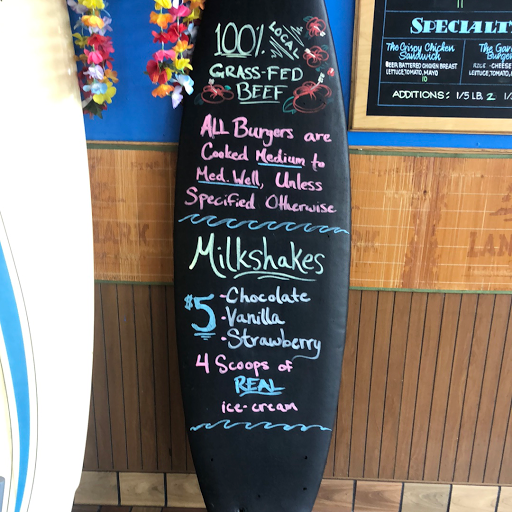 100% LOCAL
GRASS-FED
BEEF
ALL Burgers are
Cooked Medium to
Med. Well, Unless
Specified Otherwise
Milkshakes
$5 -Chocolate
-Vanilla
-Strawberry
4 Scoops of
REAL
ice-cream
SPECIALT
The Crispy Chicken
Sandwich
BEER BATTERED CHICKEN BREAST
LETTUCE, TOMATO, MAYO
10
The Gar
Burger
CHEESE
LETTUCE, TOMATO,
ADDITIONS: 1/5 LB 2 1/
LAN